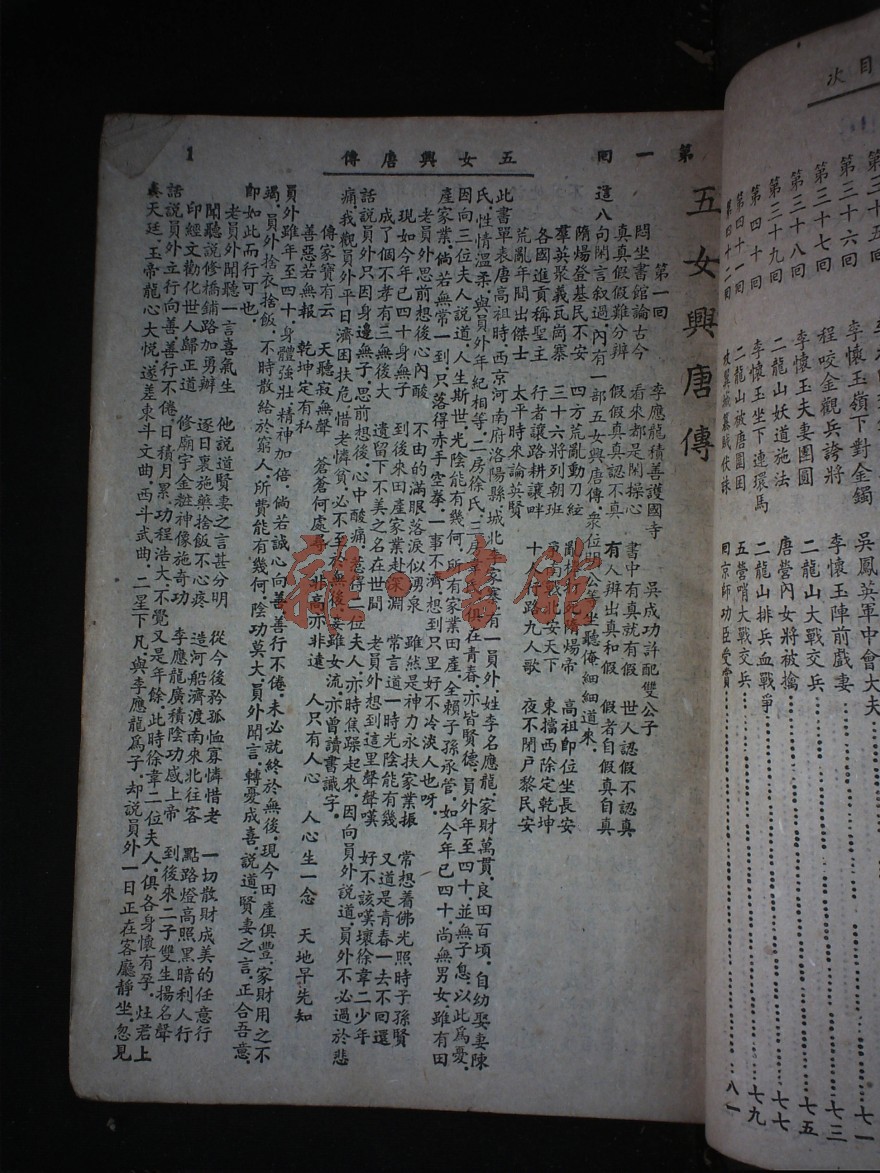 目次
第三十五回
第三十六回　吳鳳英軍中會大夫　七一
第三十七回　程咬金觀兵誇將　李懷玉陣前戲妻　七三
第三十八回　李懷玉夫妻團圓　二龍山大戰交兵　七五
第三十九回　二龍山妖道施法　唐營內女將被擒　七七
第四十回　李懷玉坐下連環馬　二龍山排兵血戰爭　七九
第四十一回　二龍山被唐圍困　五營哨大戰交兵
第四十二回　回京師功臣受賞　八一
李懷玉嶺下對金鐲
第一回　五女興唐傳　1
五女興唐傳
第一回　李應龍積善護國寺　吳成功許配雙公子
悶坐書館論古今　看來都是閑操心　書中有真就有假　世人認假不認真
真真假假難分辨　假假真真認不真　有人辨出真和假　假者自假真自真
這八句閑言叙過，內有一部五女興唐傳，衆位明公等坐聽俺細細道來，
隋煬登基民不安　四方荒亂動刀
羣英聚義瓦崗寨　三十六將列朝班　東擋西除定乾坤
各國進貢稱聖主　行者讓路耕讓畔
荒亂年間出傑士　太平時來論英賢　夜不閉戶黎民安
此書單表唐高祖時，西京河南府洛陽縣，城北李家寨，有一員外，姓李名應龍，家財萬貫，良田百頃，自幼娶妻陳
氏，性情溫柔，與員外年紀相等，二房徐氏，三房韋氏，俱在青春，亦皆賢德，員外年至四十，並無子息，以此爲憂，
因向三位夫人說道，人生斯世，光陰能有幾何，所有家業田產，全賴子孫承管，如今年已四十，尚無男女，雖有田
產家業，倘若無常一到，只落得赤手空拳，一事不濟，想到只里好不冷淡人也呀，
老員外思前想後心內酸　不由的滿眼落淚似湧泉　雖然是神力永扶家業振　常想着佛光照時子孫賢
現如今年已四十身無子　到後來田產家業赴深淵　常言道一時光陰能有幾　又道是青春一去不回還
成了個不孝有三無後大　遺留下不美之名在世間　老員外想到這里聲聲嘆　好不該嘆壞徐韋二少年
話說員外只因身邊無子，思前想後，心中酸痛，惹得二位夫人亦時焦躁起來，因向員外說道，員外不必過於悲
痛，我觀員外平日濟困扶危，惜老憐貧，必不至於無後，妾雖女流，亦曾讀書識字，
傳家寶有云　天聽寂無聲　蒼蒼何處尋　非高亦非遠　人只有人心　人心生一念　天地早先知
善惡若無報　乾坤定有私
員外雖年至四十，身體強壯，精神加倍，倘若誠心向善，善行不倦，未必就終於無後，現今田產俱豐，家財用之不
竭，員外捨衣捨飯，不時散給於窮人，所費能有幾何，陰功莫大，員外聞言，轉憂成喜，說道，賢妻之言，正合吾意，
即如此而行可也，
老員外聞聽一言喜氣生　他說道賢妻之言甚分明　從今後矜孤恤寡憐惜老　一切散財成美的任意行
聞聽說修橋鋪路加勇辦　逐日裏施藥捨飯不心疼　造河船濟渡南來北往客　點路燈高照黑暗利人行
印經文勸化世人歸正道　修廟宇金粧神像施奇功　李應龍廣積陰功感上帝　到後來二子雙生揚名聲
話說員外立行向善，善行不倦，日積月累，功程浩大，不覺又是年餘，此時徐韋二位夫人，俱各身懷有孕，灶君上
奏天廷，玉帝龍心大悅，遂差東斗文曲，西斗武曲，二星下凡，與李應龍爲子，却說員外一日正在客廳靜坐，忽見